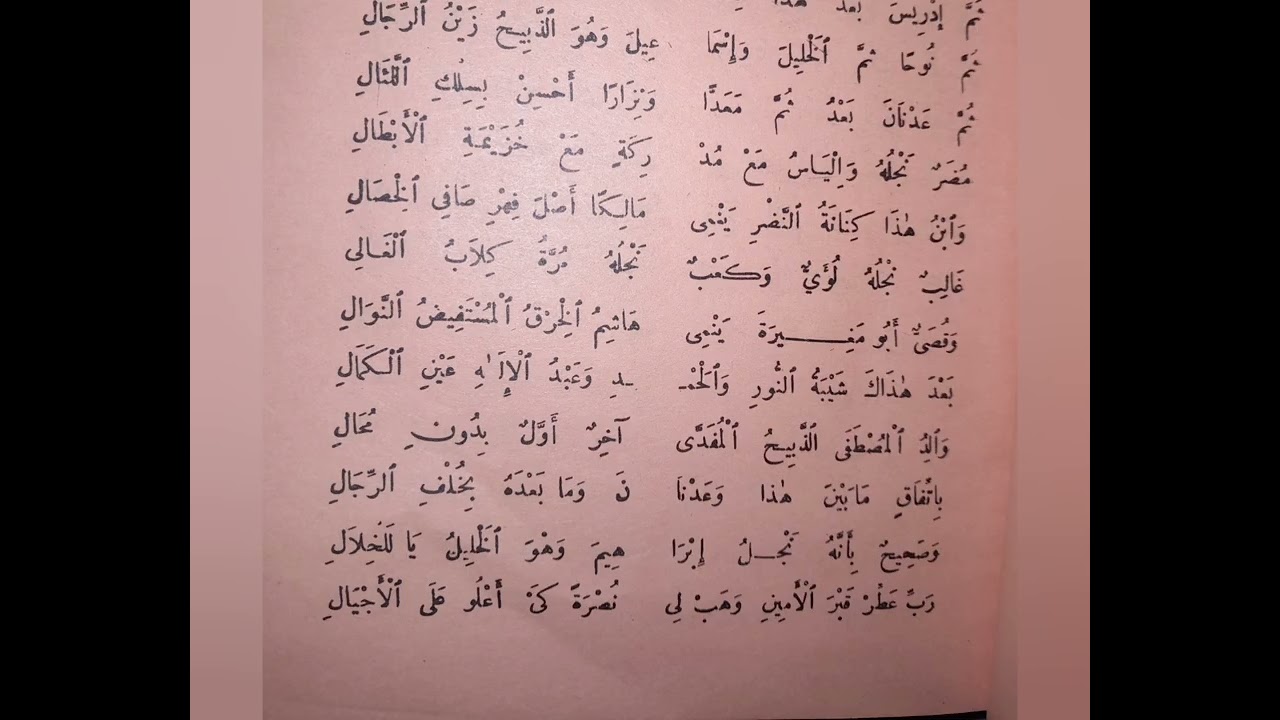 ثُمَّ إِدْرِيسَ بَعْدَ هٰذَا
ثُمَّ نُوحًا ثُمَّ ٱلْخَلِيلَ وَإِسْمَا عِيلَ وَهُوَ ٱلذَّبِيحُ زَيْنُ ٱلرِّجَالِ
ثُمَّ عَدْنَانَ بَعْدُ ثُمَّ مَعَدًّا وَنِزَارًا أَحْسِنْ بِسِلْكِ ٱللَّئَالِ
مُضَرٌ نَجْلُهُ وَإِلْيَاسُ مَعْ مُدْ رِكَةٍ مَعْ خُزَيْمَةِ ٱلْأَبْطَالِ
وَٱبْنُ هٰذَا كِنَانَةُ ٱلنَّضْرِ يَنْمِى مَالِكًا أَصْلَ فِهْرِ صَافِي ٱلْخِصَالِ
غَالِبٌ نَجْلُهُ لُؤَيٌّ وَكَعْبٌ نَجْلُهُ مُرَّةٌ كِلَابُ ٱلْغَالِي
وَقُصَىٌّ أَبُو مَغِيرَةَ يَنْمِى هَاشِمُ ٱلْخِرْقُ ٱلْمُسْتَفِيضُ ٱلنَّوَالِ
بَعْدَ هٰذَاكَ شَيْبَةُ ٱلنُّورِ وَٱلْحَمْـ ـدِ وَعَبْدُ ٱلْإِلَٰهِ عَيْنِ ٱلْكَمَالِ
وَالِدُ ٱلْمُصْطَفَى ٱلذَّبِيحُ ٱلْمُفَدَّى آخِرٌ أَوَّلٌ بِدُونِ مُحَالِ
بِاتِّفَاقٍ مَابَيْنَ هٰذَا وَعَدْنَا نَ وَمَا بَعْدَهُ بِخُلْفِ ٱلرِّجَالِ
وَصَحِيحٌ بِأَنَّهُ نَجْلُ إِبْرَا هِيمَ وَهْوَ ٱلْخَلِيلُ يَا لَلْخِلَالِ
رَبِّ عَطِّرْ قَبْرَ ٱلْأَمِينِ وَهَبْ لِي نُصْرَةً كَىْ أَعْلُو عَلَى ٱلْأَجْيَالِ